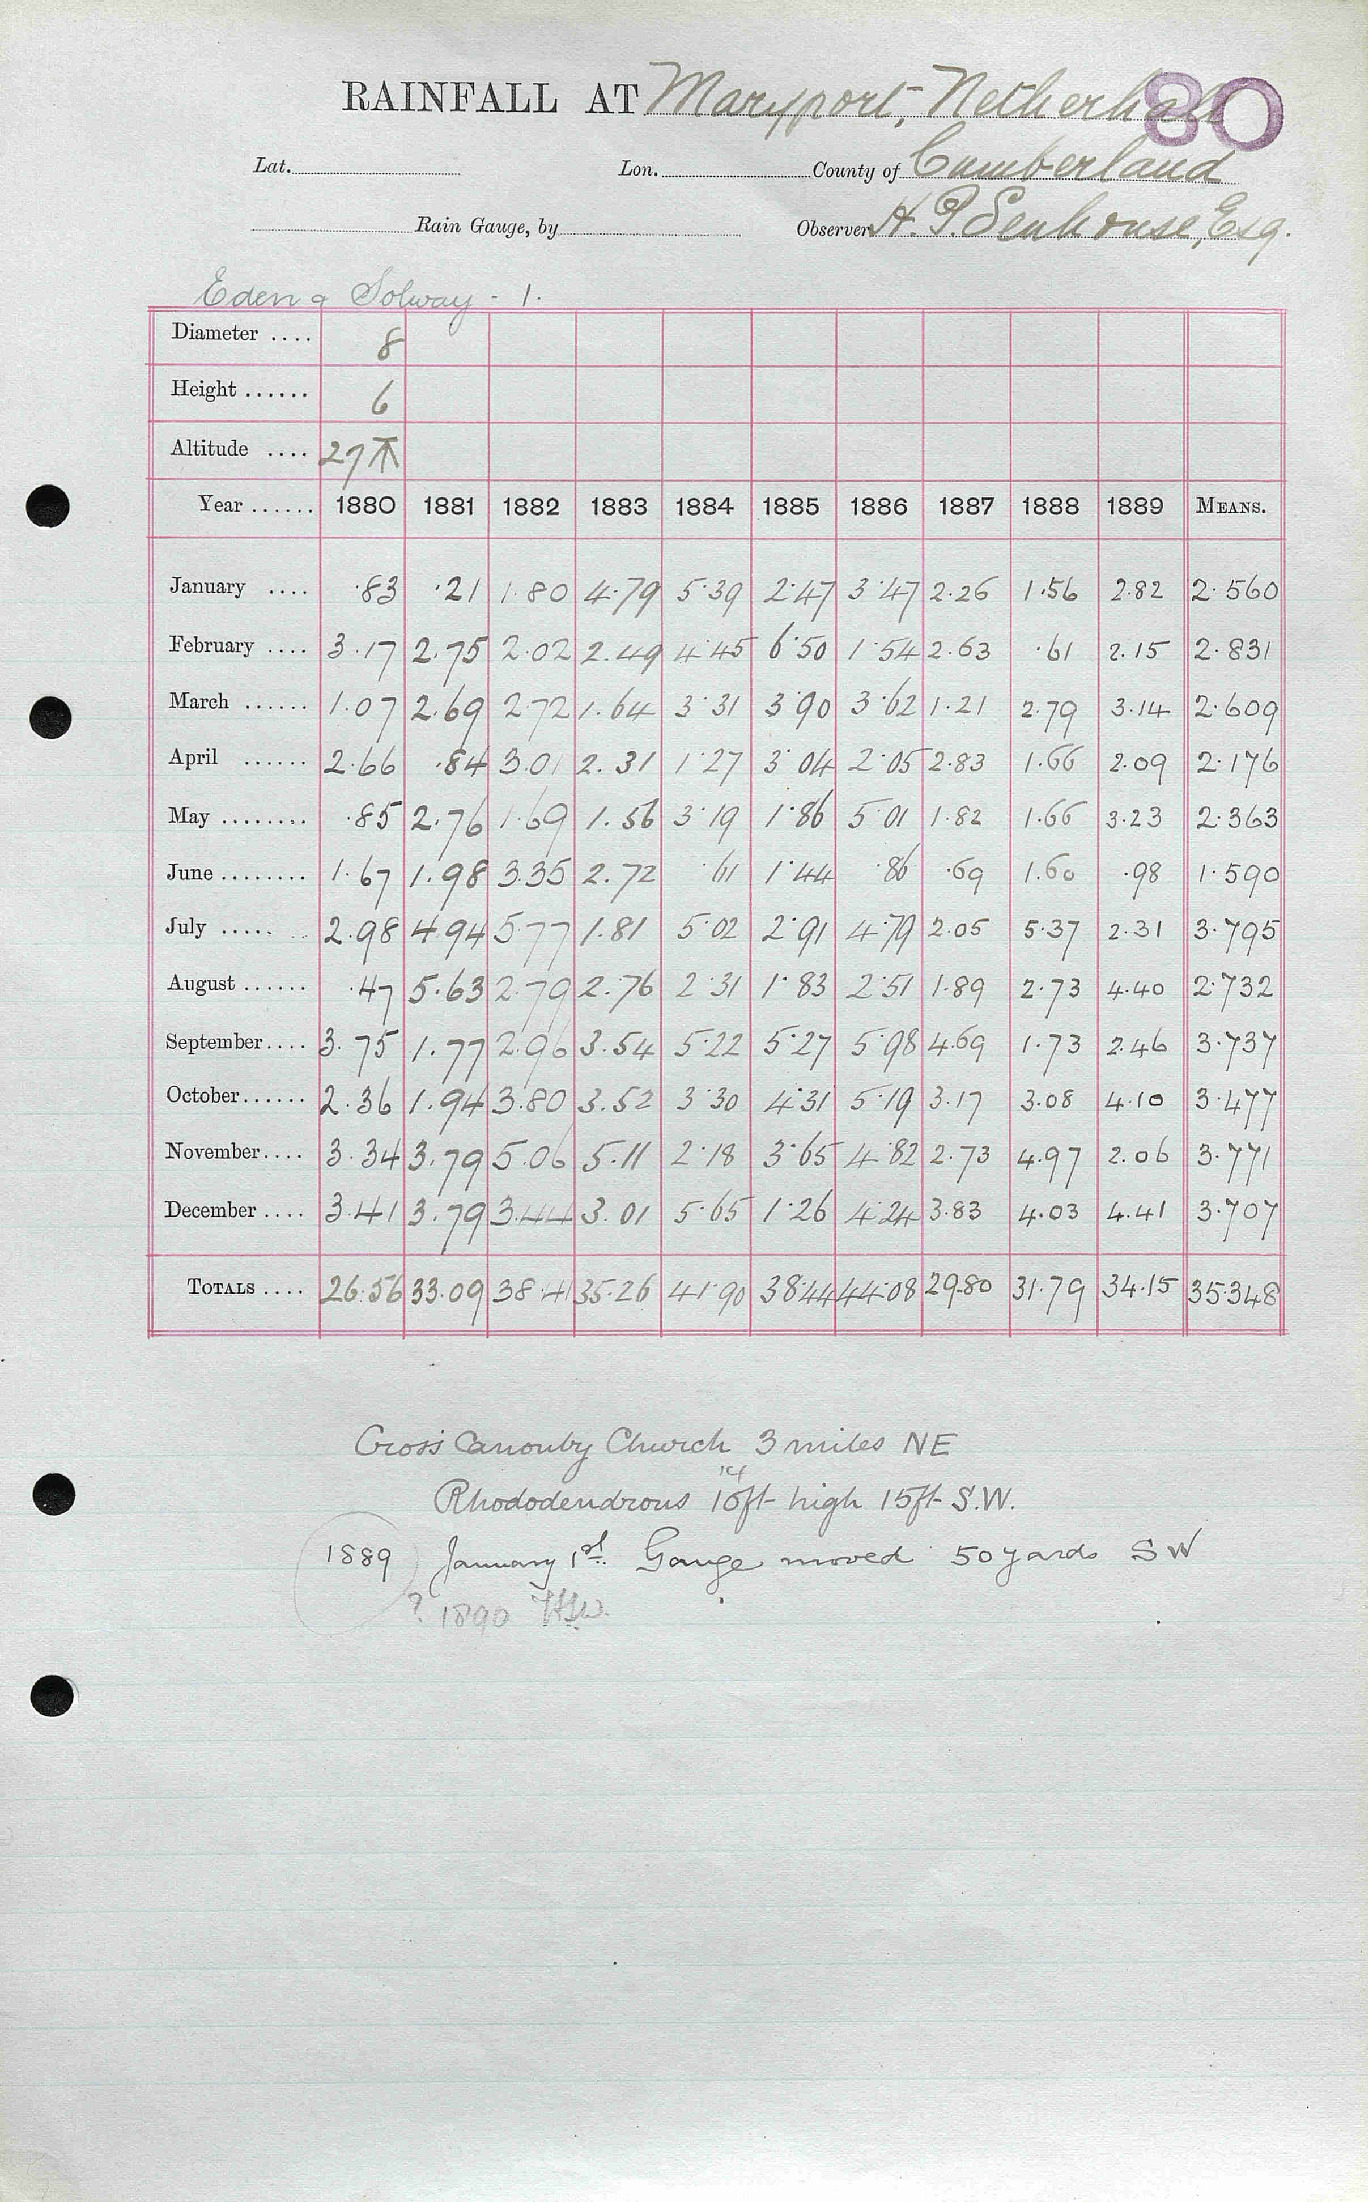 RAINFALL AT Maryport, Netherhall 80
Lat. Lon. County of Cumberland
Rain Gauge, by Observer H. P. Senhouse, Esq.
Eden & Solway - 1.
Diameter .... 8
Height ...... 6
Altitude .... 27
Year ...... 1880 1881 1882 1883 1884 1885 1886 1887 1888 1889 MEANS.
January .... .83 .21 1.80 4.79 5.39 2.47 3.47 2.26 1.56 2.82 2.560
February .... 3.17 2.75 2.02 2.49 4.45 6.50 1.54 2.63 .61 2.15 2.831
March ...... 1.07 2.69 2.72 1.64 3.31 3.90 3.62 1.21 2.79 3.14 2.609
April ...... 2.66 .84 3.01 2.31 1.27 3.04 2.05 2.83 1.66 2.09 2.176
May ........ .85 2.76 1.69 1.56 3.19 1.86 5.01 1.82 1.66 3.23 2.363
June ........ 1.67 1.98 3.35 2.72 .61 1.44 .86 .69 1.60 .98 1.590
July ..... 2.98 4.94 5.77 1.81 5.02 2.91 4.79 2.05 5.37 2.31 3.795
August ...... .47 5.63 2.79 2.76 2.31 1.83 2.51 1.89 2.73 4.40 2.732
September.... 3.75 1.77 2.96 3.54 5.22 5.27 5.98 4.69 1.73 2.46 3.737
October...... 2.36 1.94 3.80 3.52 3.30 4.31 5.19 3.17 3.08 4.10 3.477
November.... 3.34 3.79 5.06 5.11 2.18 3.65 4.82 2.73 4.97 2.06 3.771
December .... 3.41 3.79 3.44 3.01 5.65 1.26 4.24 3.83 4.03 4.41 3.707
TOTALS .... 26.56 33.09 38.41 35.26 41.90 38.44 44.08 29.80 31.79 34.15 35.348
Cross Canonby Church 3 miles NE
Rhododendrons 10ft high 15ft S.W.
1889 January 1st. Gauge moved 50 yards SW
? 1890